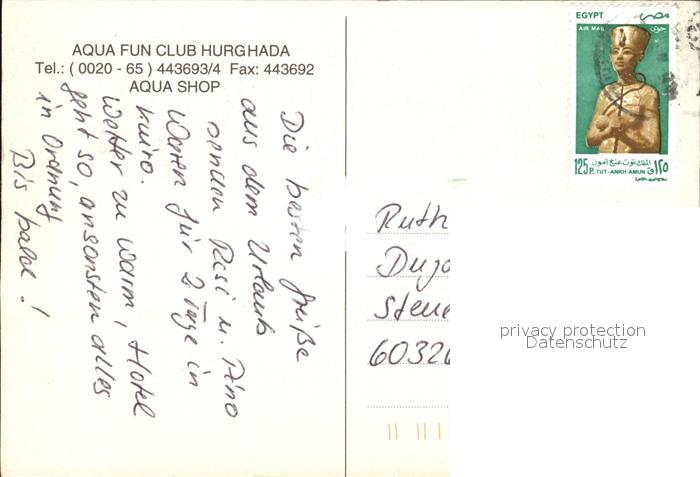 AQUA FUN CLUB HURGHADA
Tel.: ( 0020 - 65 ) 443693/4 Fax: 443692
AQUA SHOP
Die besten Grüße
aus dem Urlaub
senden Resi u. Pino
Waren für 2 Tage in
Kairo.
Wetter zu warm, Hotel
geht so, ansonsten alles
in Ordnung
Bis bald !
EGYPT مصر
AIR MAIL جوى
الملك توت عنخ آمون
125 P. TUT-ANKH AMUN ١٢٥ ق
Ruth
Dujo
Steue
60326
privacy protection
Datenschutz